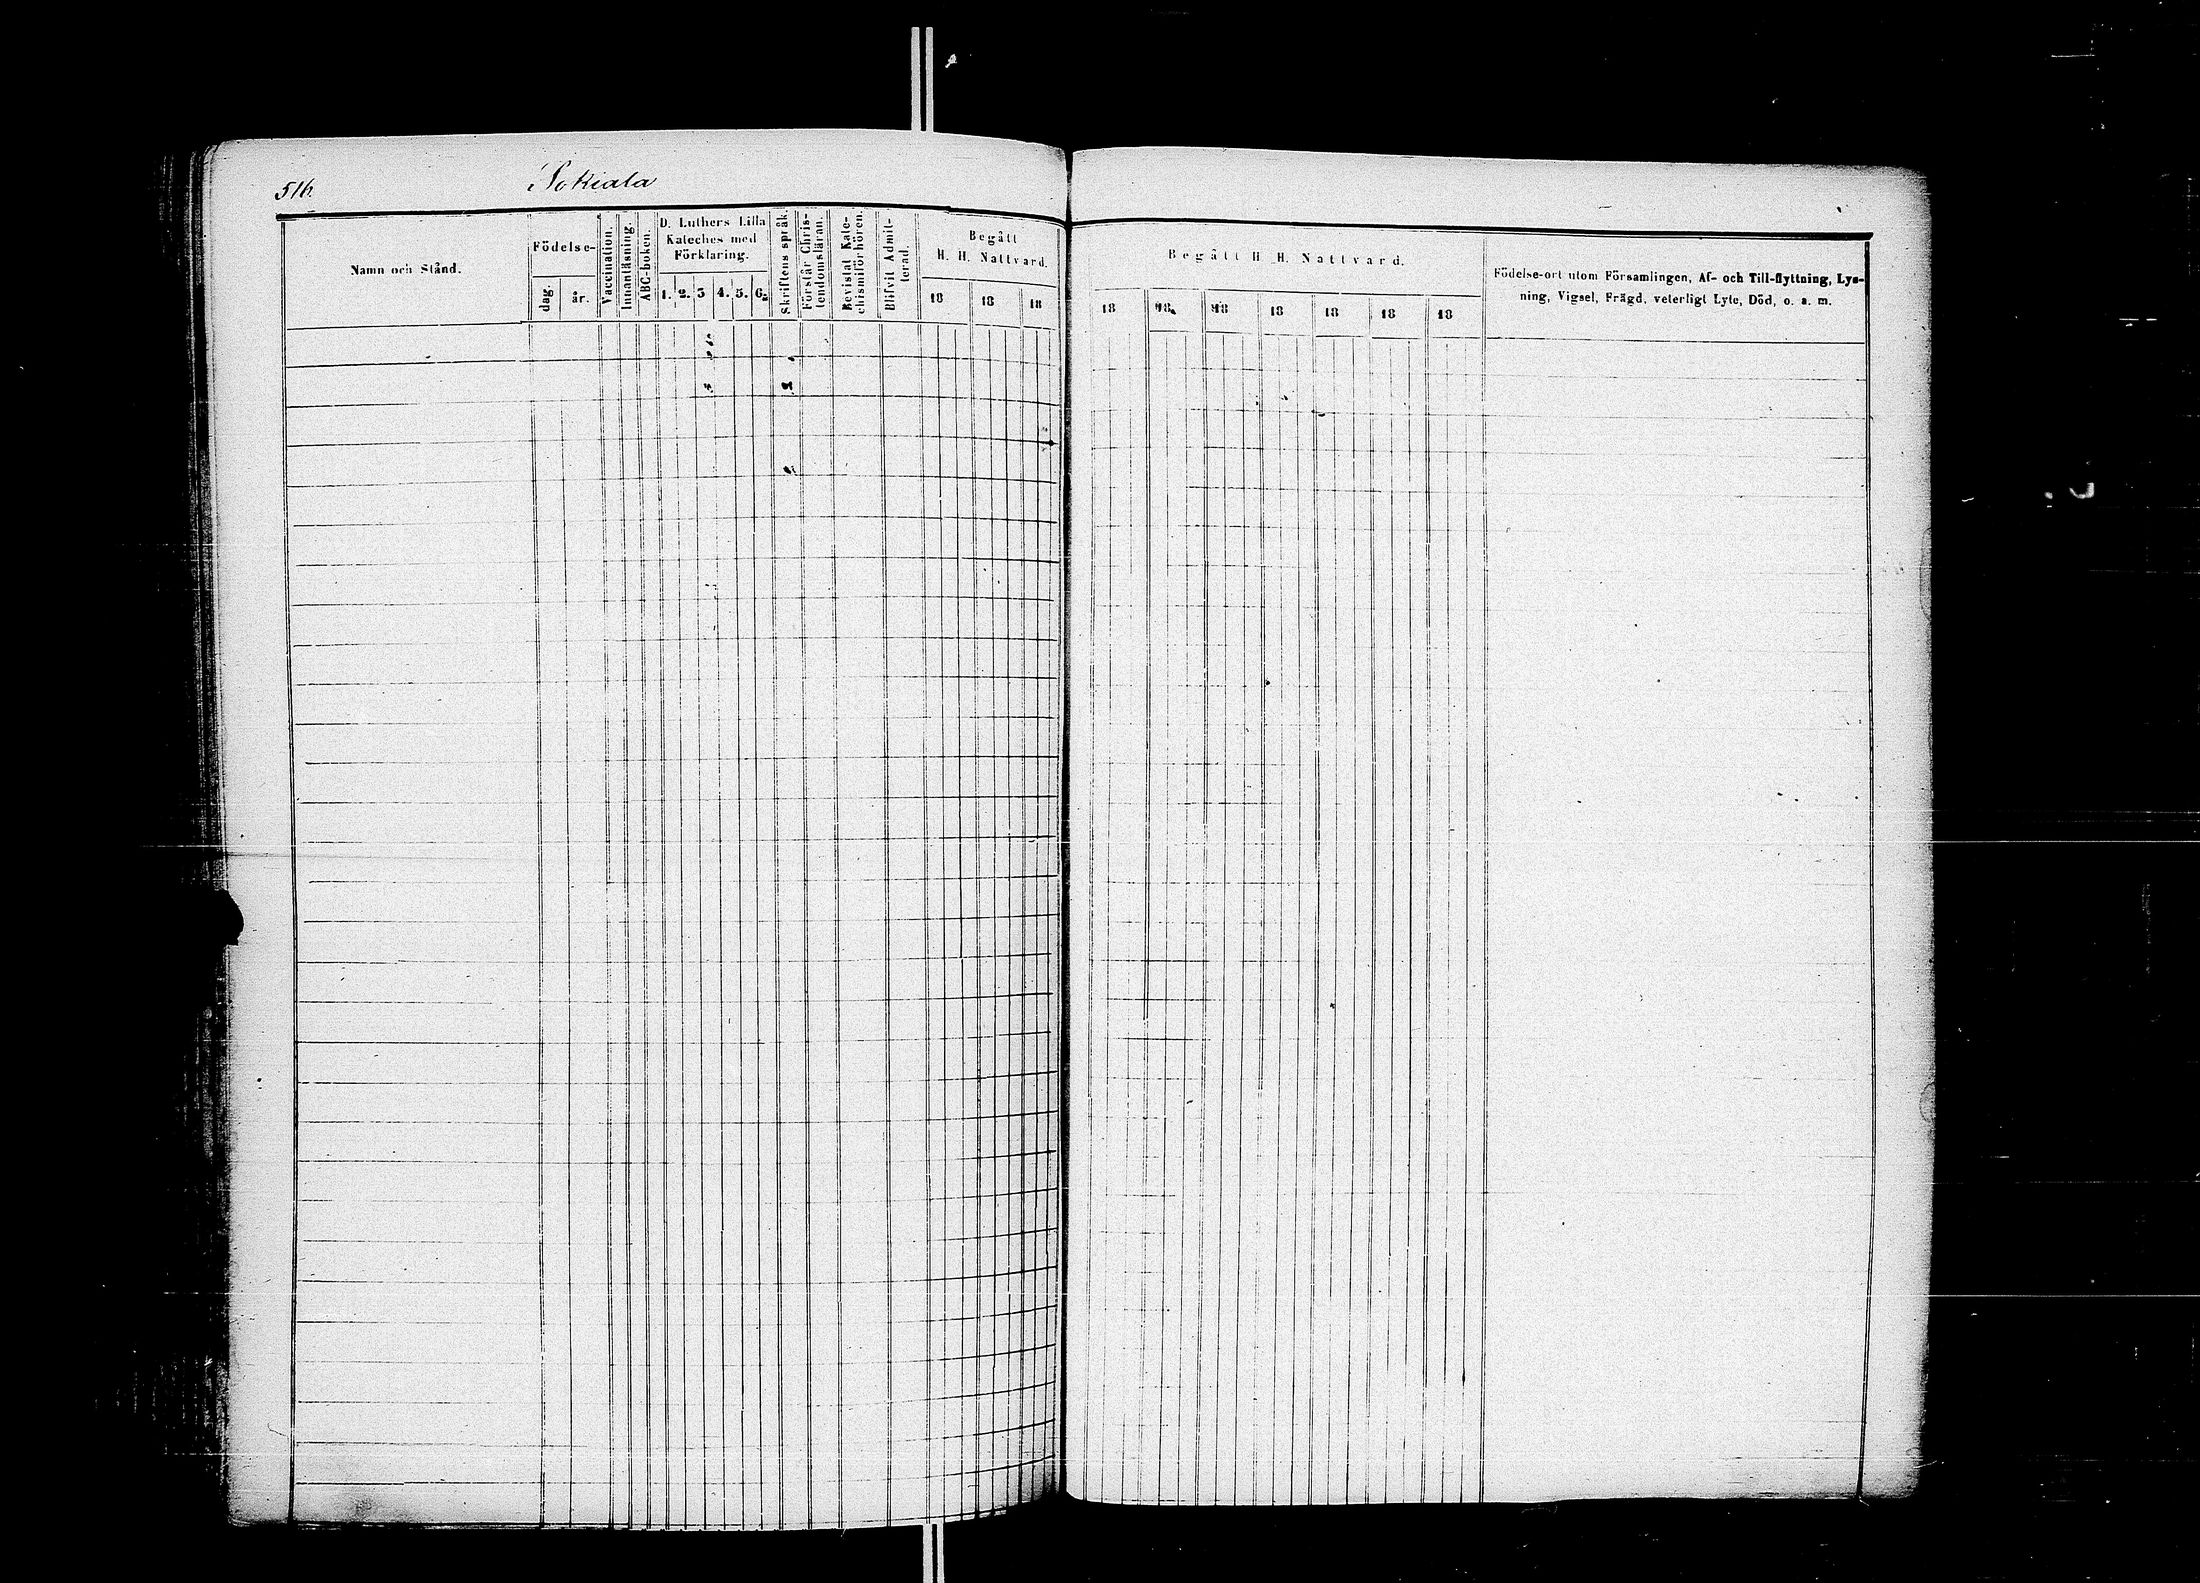 516. Sokiala
Namn och Stånd.
Födelse-
dag.
år.
Vaccination.
Innanläsning.
ABC-boken.
D. Luthers Lilla
Kateches med
Förklaring.
1. 2. 3 4. 5. 6.
Skriftens språk.
Förstår Chris-
tendomsläran.
Bevistat Kate-
chismiförhören.
Blifvit Admit-
terad.
Begått
H. H. Nattvard.
18 18 18
Begått H. H. Nattvard.
18 18 18 18 18 18 18
Födelse-ort utom Församlingen, Af- och Till-flyttning, Lys-
ning, Vigsel, Frägd, veterligt Lyte, Död, o. s. m.